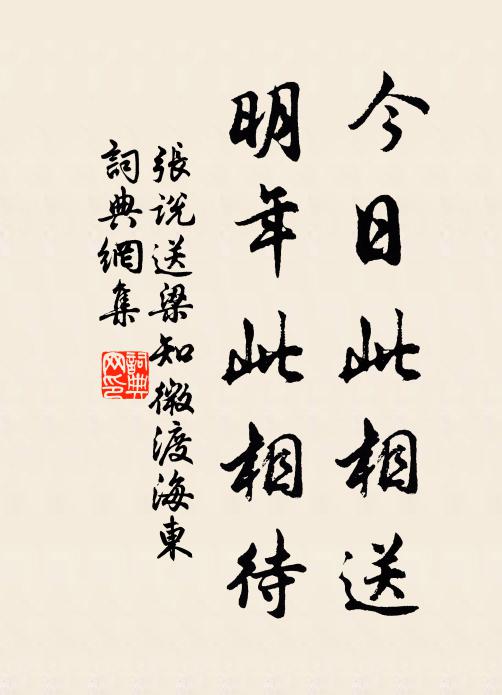 今日此相送
明年此相待
張說送梁知微渡海東
詞典網集
詞典網印